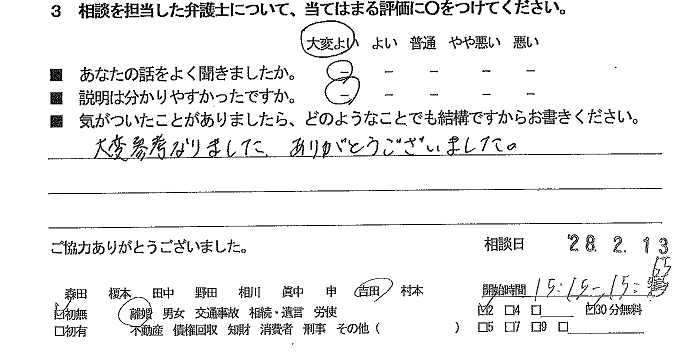 3 相談を担当した弁護士について、当てはまる評価に〇をつけてください。
大変よい よい 普通 やや悪い 悪い
■ あなたの話をよく聞きましたか。 － － － － －
■ 説明は分かりやすかったですか。 － － － － －
■ 気がついたことがありましたら、どのようなことでも結構ですからお書きください。
大変参考なりました、ありがとうございました。
ご協力ありがとうございました。 相談日 '28.2.13
森田 榎本 田中 野田 相川 眞中 申 吉田 村本 開始時間 15:15-15:55
☑初無 離婚 男女 交通事故 相続・遺言 労使 ☑2 □4 □ ☑30分無料
□初有 不動産 債権回収 知財 消費者 刑事 その他( ) □5 □7 □9 □